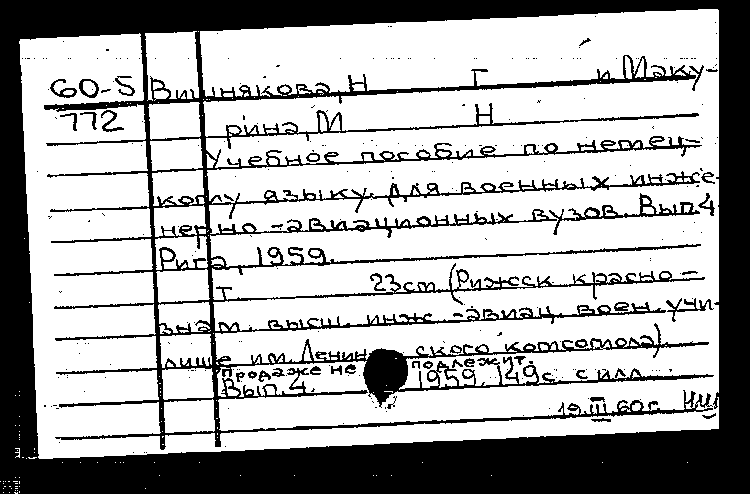 60-5 Вишнякова, Н Г и Маку-
772 рина, М Н
Учебное пособие по немец-
кому языку. Для военных инже-
нерно-авиационных вузов. Вып. 4
Рига, 1959.
т. 23 см. (Рижск красно-
знам. высш. инж.-авиац. воен. учи-
лище им. Ленин ского комсомола)
Продаже не подлежит.
Вып. 4. 1959. 149 с. с илл.
19.III.60 г.